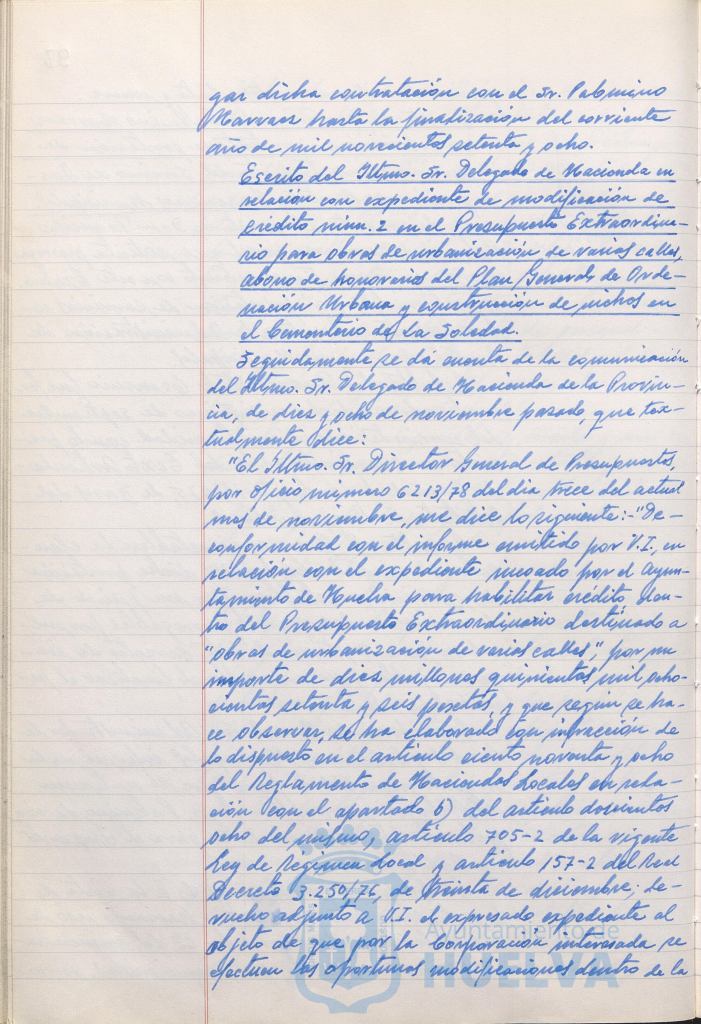 gar dicha contratación con el Sr. Palomino
Narvaez hasta la finalización del corriente
año de mil novecientos setenta y ocho.
Escrito del Iltmo. Sr. Delegado de Hacienda en
relación con expediente de modificación de
crédito núm. 2 en el Presupuesto Extraordina-
rio para obras de urbanización de varias calles,
abono de honorarios del Plan General de Orde-
nación Urbana y construcción de nichos en
el Cementerio de La Soledad.
Seguidamente se dá cuenta de la comunicación
del Iltmo. Sr. Delegado de Hacienda de la Provin-
cia, de diez y ocho de noviembre pasado, que tex-
tualmente dice:
"El Iltmo. Sr. Director General de Presupuestos,
por oficio número 6213/78 del día trece del actual
mes de noviembre, me dice lo siguiente:-"De
conformidad con el informe emitido por V.I., en
relación con el expediente incoado por el Ayun-
tamiento de Huelva para habilitar crédito den-
tro del Presupuesto Extraordinario destinado a
"obras de urbanización de varias calles", por un
importe de diez millones quinientas mil ocho-
cientas setenta y seis pesetas, y que según se ha-
ce observar, se ha elaborado con infracción de
lo dispuesto en el artículo ciento noventa y ocho
del Reglamento de Haciendas Locales en rela-
ción con el apartado b) del artículo doscientos
ocho del mismo, artículo 705-2 de la vigente
Ley de Régimen Local y artículo 157-2 del Real
Decreto 3.250/76, de treinta de diciembre; de-
vuelvo adjunto a V.I. el expresado expediente al
objeto de que por la Corporación interesada se
efectuen las oportunas modificaciones dentro de la
Ayuntamiento de
HUELVA